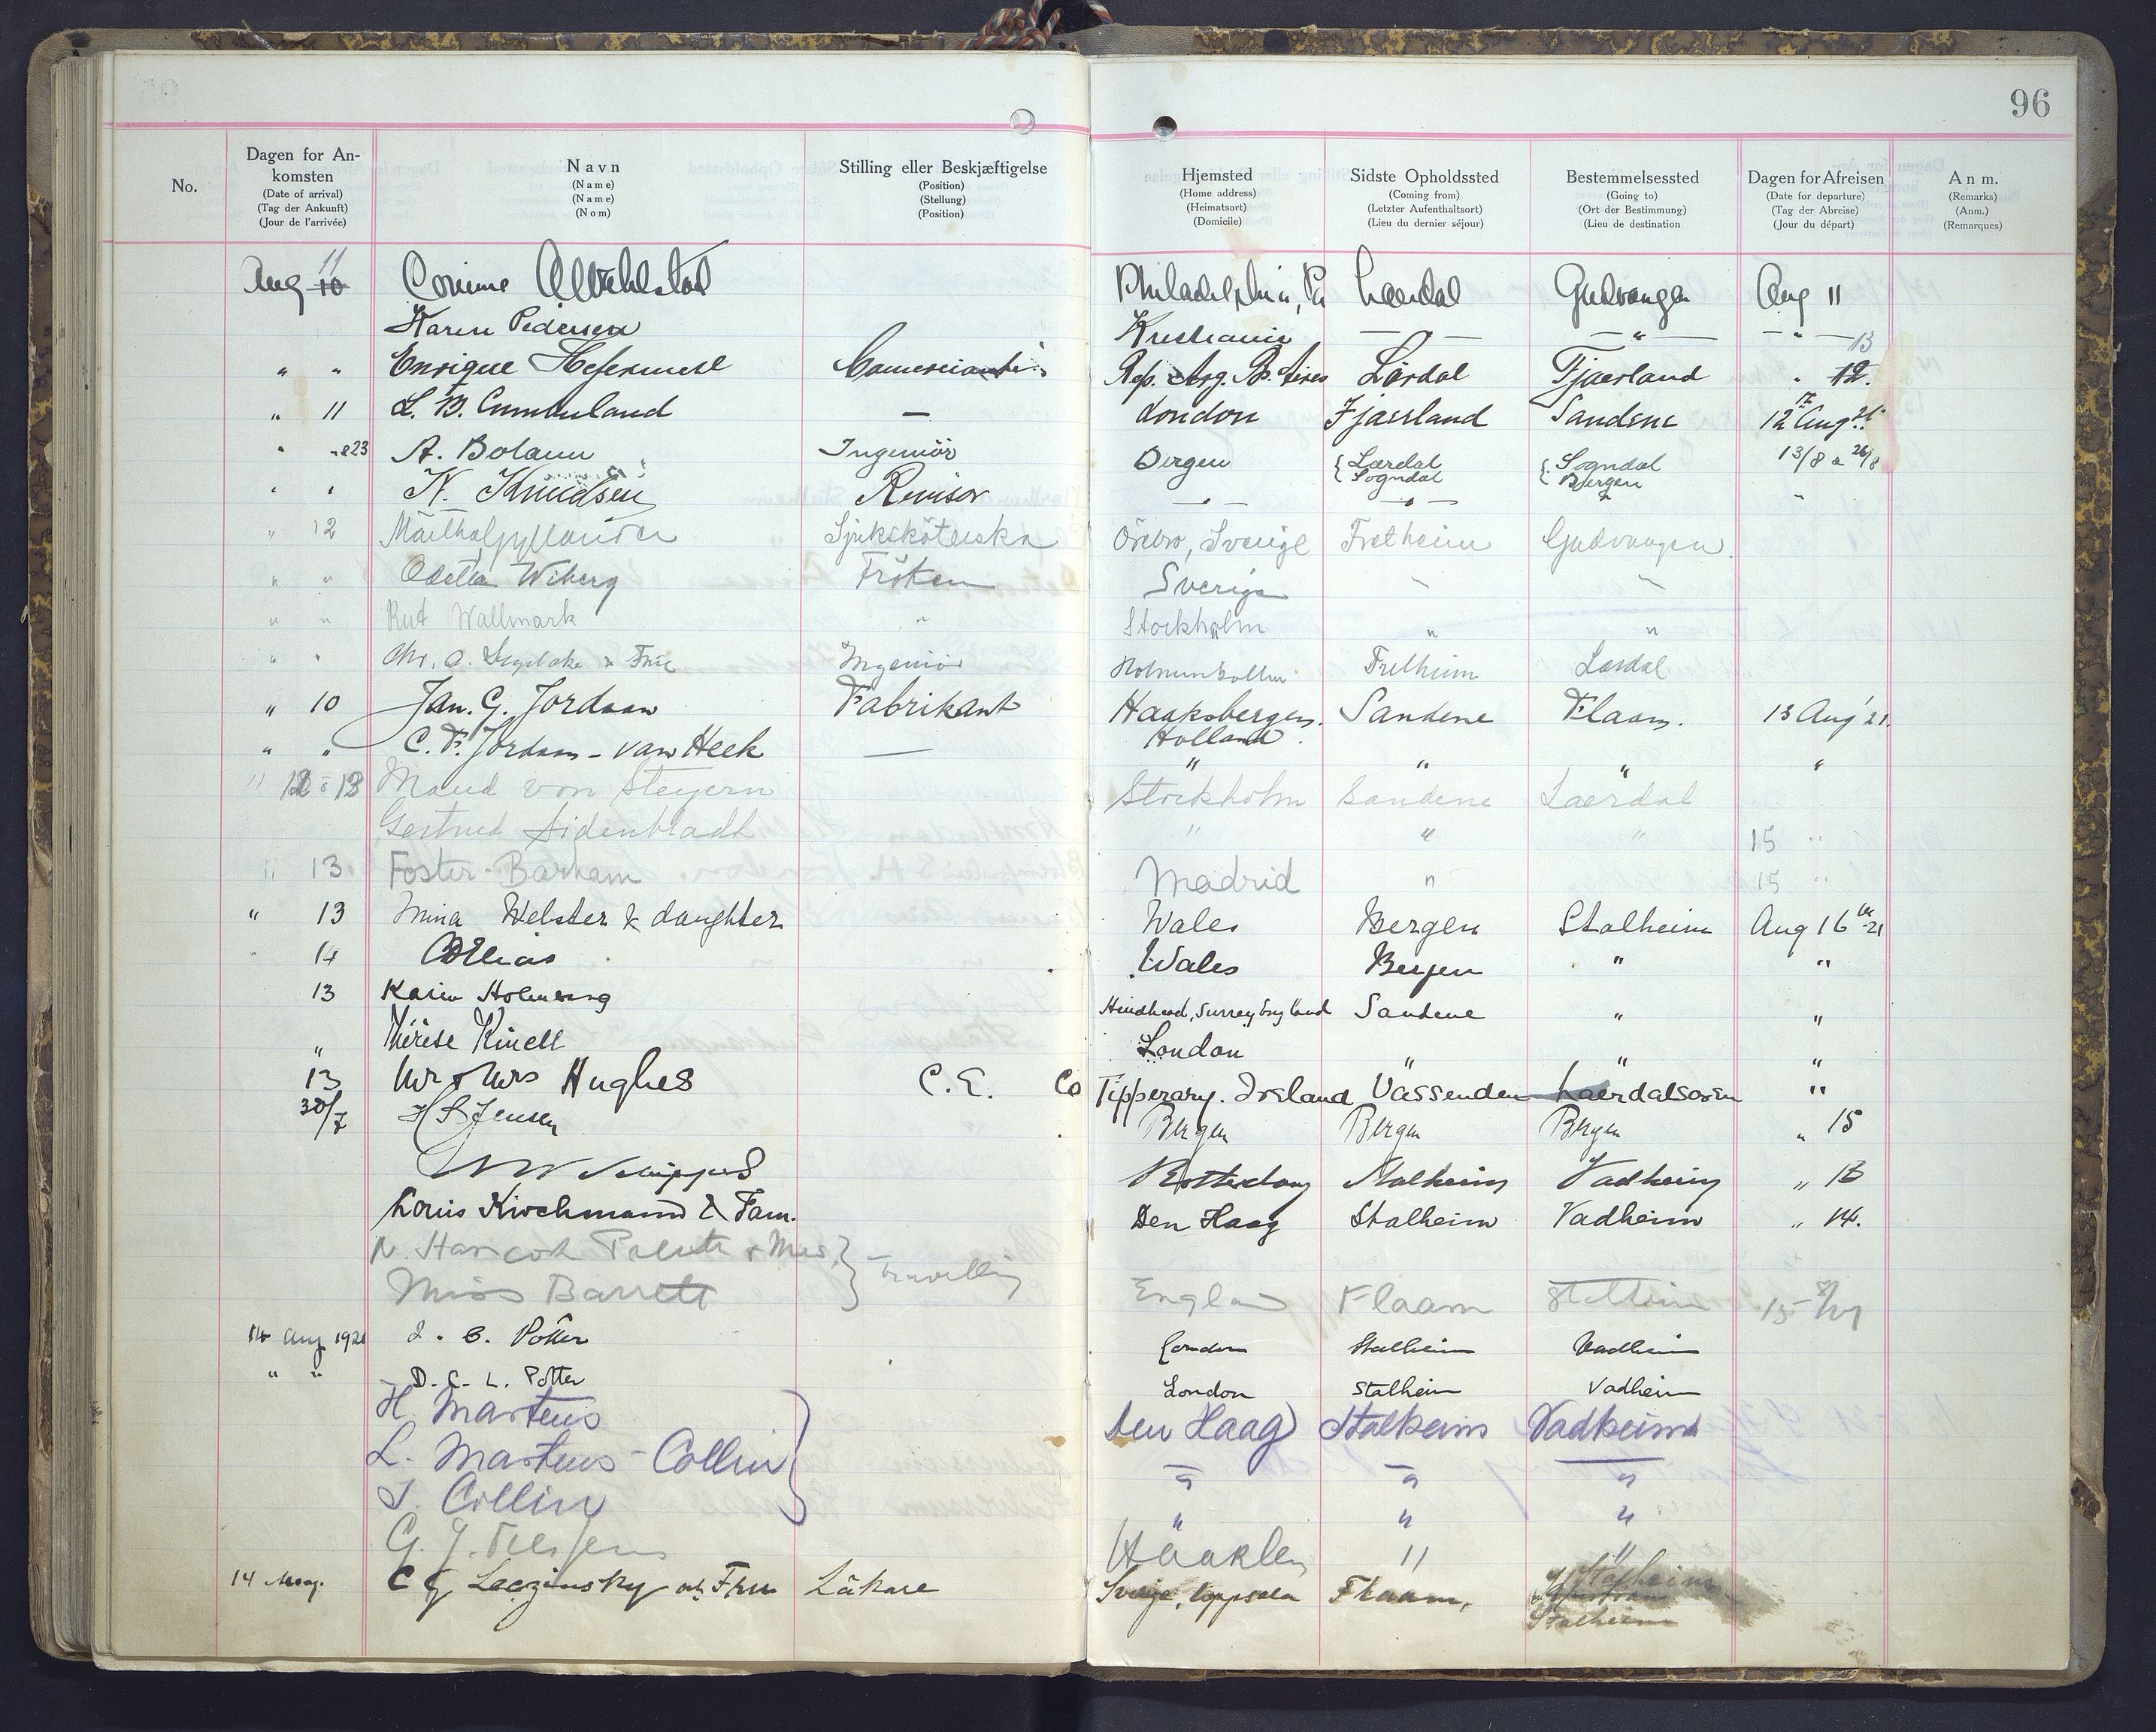 96
No.
Dagen for An-
komsten
(Date of arrival)
(Tag der Ankunft)
(Jour de l'arrivée)
Navn
(Name)
(Name)
(Nom)
Stilling eller Beskjæftigelse
(Position)
(Stellung)
(Position)
Hjemsted
(Home address)
(Heimatsort)
(Domicile)
Sidste Opholdssted
(Coming from)
(Letzter Aufenthaltsort)
(Lieu du dernier séjour)
Bestemmelsessted
(Going to)
(Ort der Bestimmung)
(Lieu de destination
Dagen for Afreisen
(Date for departure)
(Tag der Abreise)
(Jour du départ)
Anm.
(Remarks)
(Anm.)
(Remarques)
Aug 10 11 Corinne Philadelphia, Pa Laerdal Gudvangen Aug 11
Karen Pedersen Kristiania — " — — " — — " — 13
" " Enrique Rep. Arg. Bs. Aires Lärdal Fjaerland " 12.
" 11 L. B. Cumberland — London Fjaerland Sandene 12th Aug 21.
" " 23 A. Bolann Ingeniör Bergen { Lærdal { Sogndal 13/8 a 26/8
Sogndal Bergen
" " K. Knudsen Revisor — " — — " — " "
" 12 Märtha Gyllander Sjuksköterska Örebro, Sverige Fretheim Gudvangen.
" " Odella Wiberg Fröken Sverige " "
" " Rut Wallmark " Stockholm " "
" " Chr. A. & Frue Ingeniör Holmenkollen Fretheim Lærdal
" 10 Jan. G. Jordaan Fabrikant Haaksbergen. Sandene Flaam. 13 Aug '21.
Holland.
" " C. F. Jordaan - van Heek — " " " "
" 12 - 13 Maud von Steyern Stockholm Sandene Laerdal
Gertrud Sidenbladh " " " 15 "
" 13 Foster-Barham Madrid " 15 "
" 13 Mina Webster & daughter Wales Bergen Stalheim Aug 16th -21
" 14 Elias Wales Bergen " "
13 Karin Holmberg Hindhead, Surrey England Sandene " "
" Thérèse Kinell London " " "
13 Mr & Mrs Hughes C.E. Co Tipperary. Ireland Vassenden Laerdalsören "
30/7 H S Jensen Bergen Bergen Bergen " 15
Rotterdam Stalheim Vadheim " 13
Louis Kirchmann & Fam. Den Haag Stalheim Vadheim " 14.
N. Hancock & Mrs. } Travelling
Miss Barrett England Flaam Stalheim 15
14 Aug 1921 J. C. Potter London Stalheim Vadheim
" " D. C. L. Potter London Stalheim Vadheim
H. Martens } Den Haag Stalheim Vadheim
L. Martens - Collin " " "
J. Collin " " "
G. J. " "
14 Aug. C G Leczinsky och Fru Läkare Sverige, Uppsala Flaam, Stalheim
Stalheim